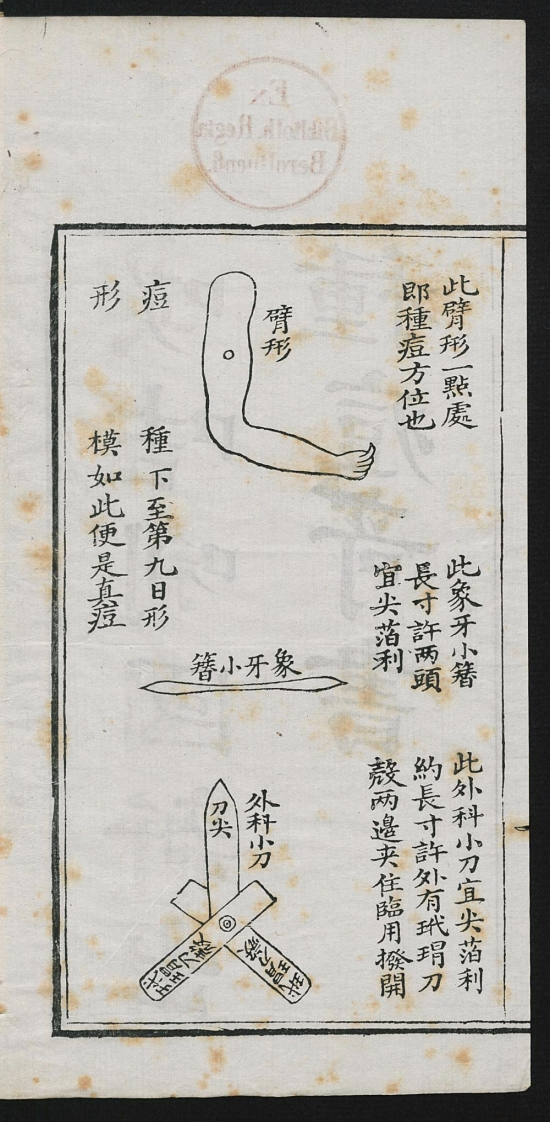 Ex
Biblioth. Regia
Berolinenſi.
此臂形一點處
即種痘方位也
臂形
痘
形
種下至第九日形
模如此便是真痘
此象牙小簪
長寸許两頭
宜尖萡利
象牙小簪
此外科小刀宜尖萡利
約長寸許外有玳瑁刀
殼两邉夹住臨用撥開
外科小刀
刀尖
玳瑁刀殼
玳瑁刀殼